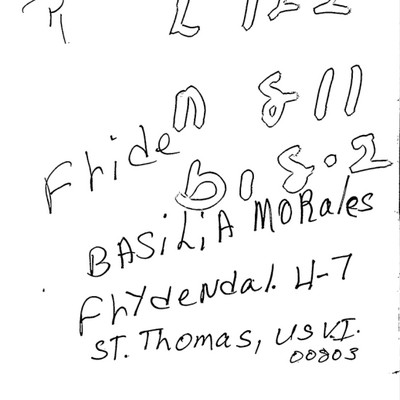 R L 122
Friden 811
6.8.2
BASiLiA MORales
FrYdeNdal. 4-7
ST. Thomas, US V.I.
00803